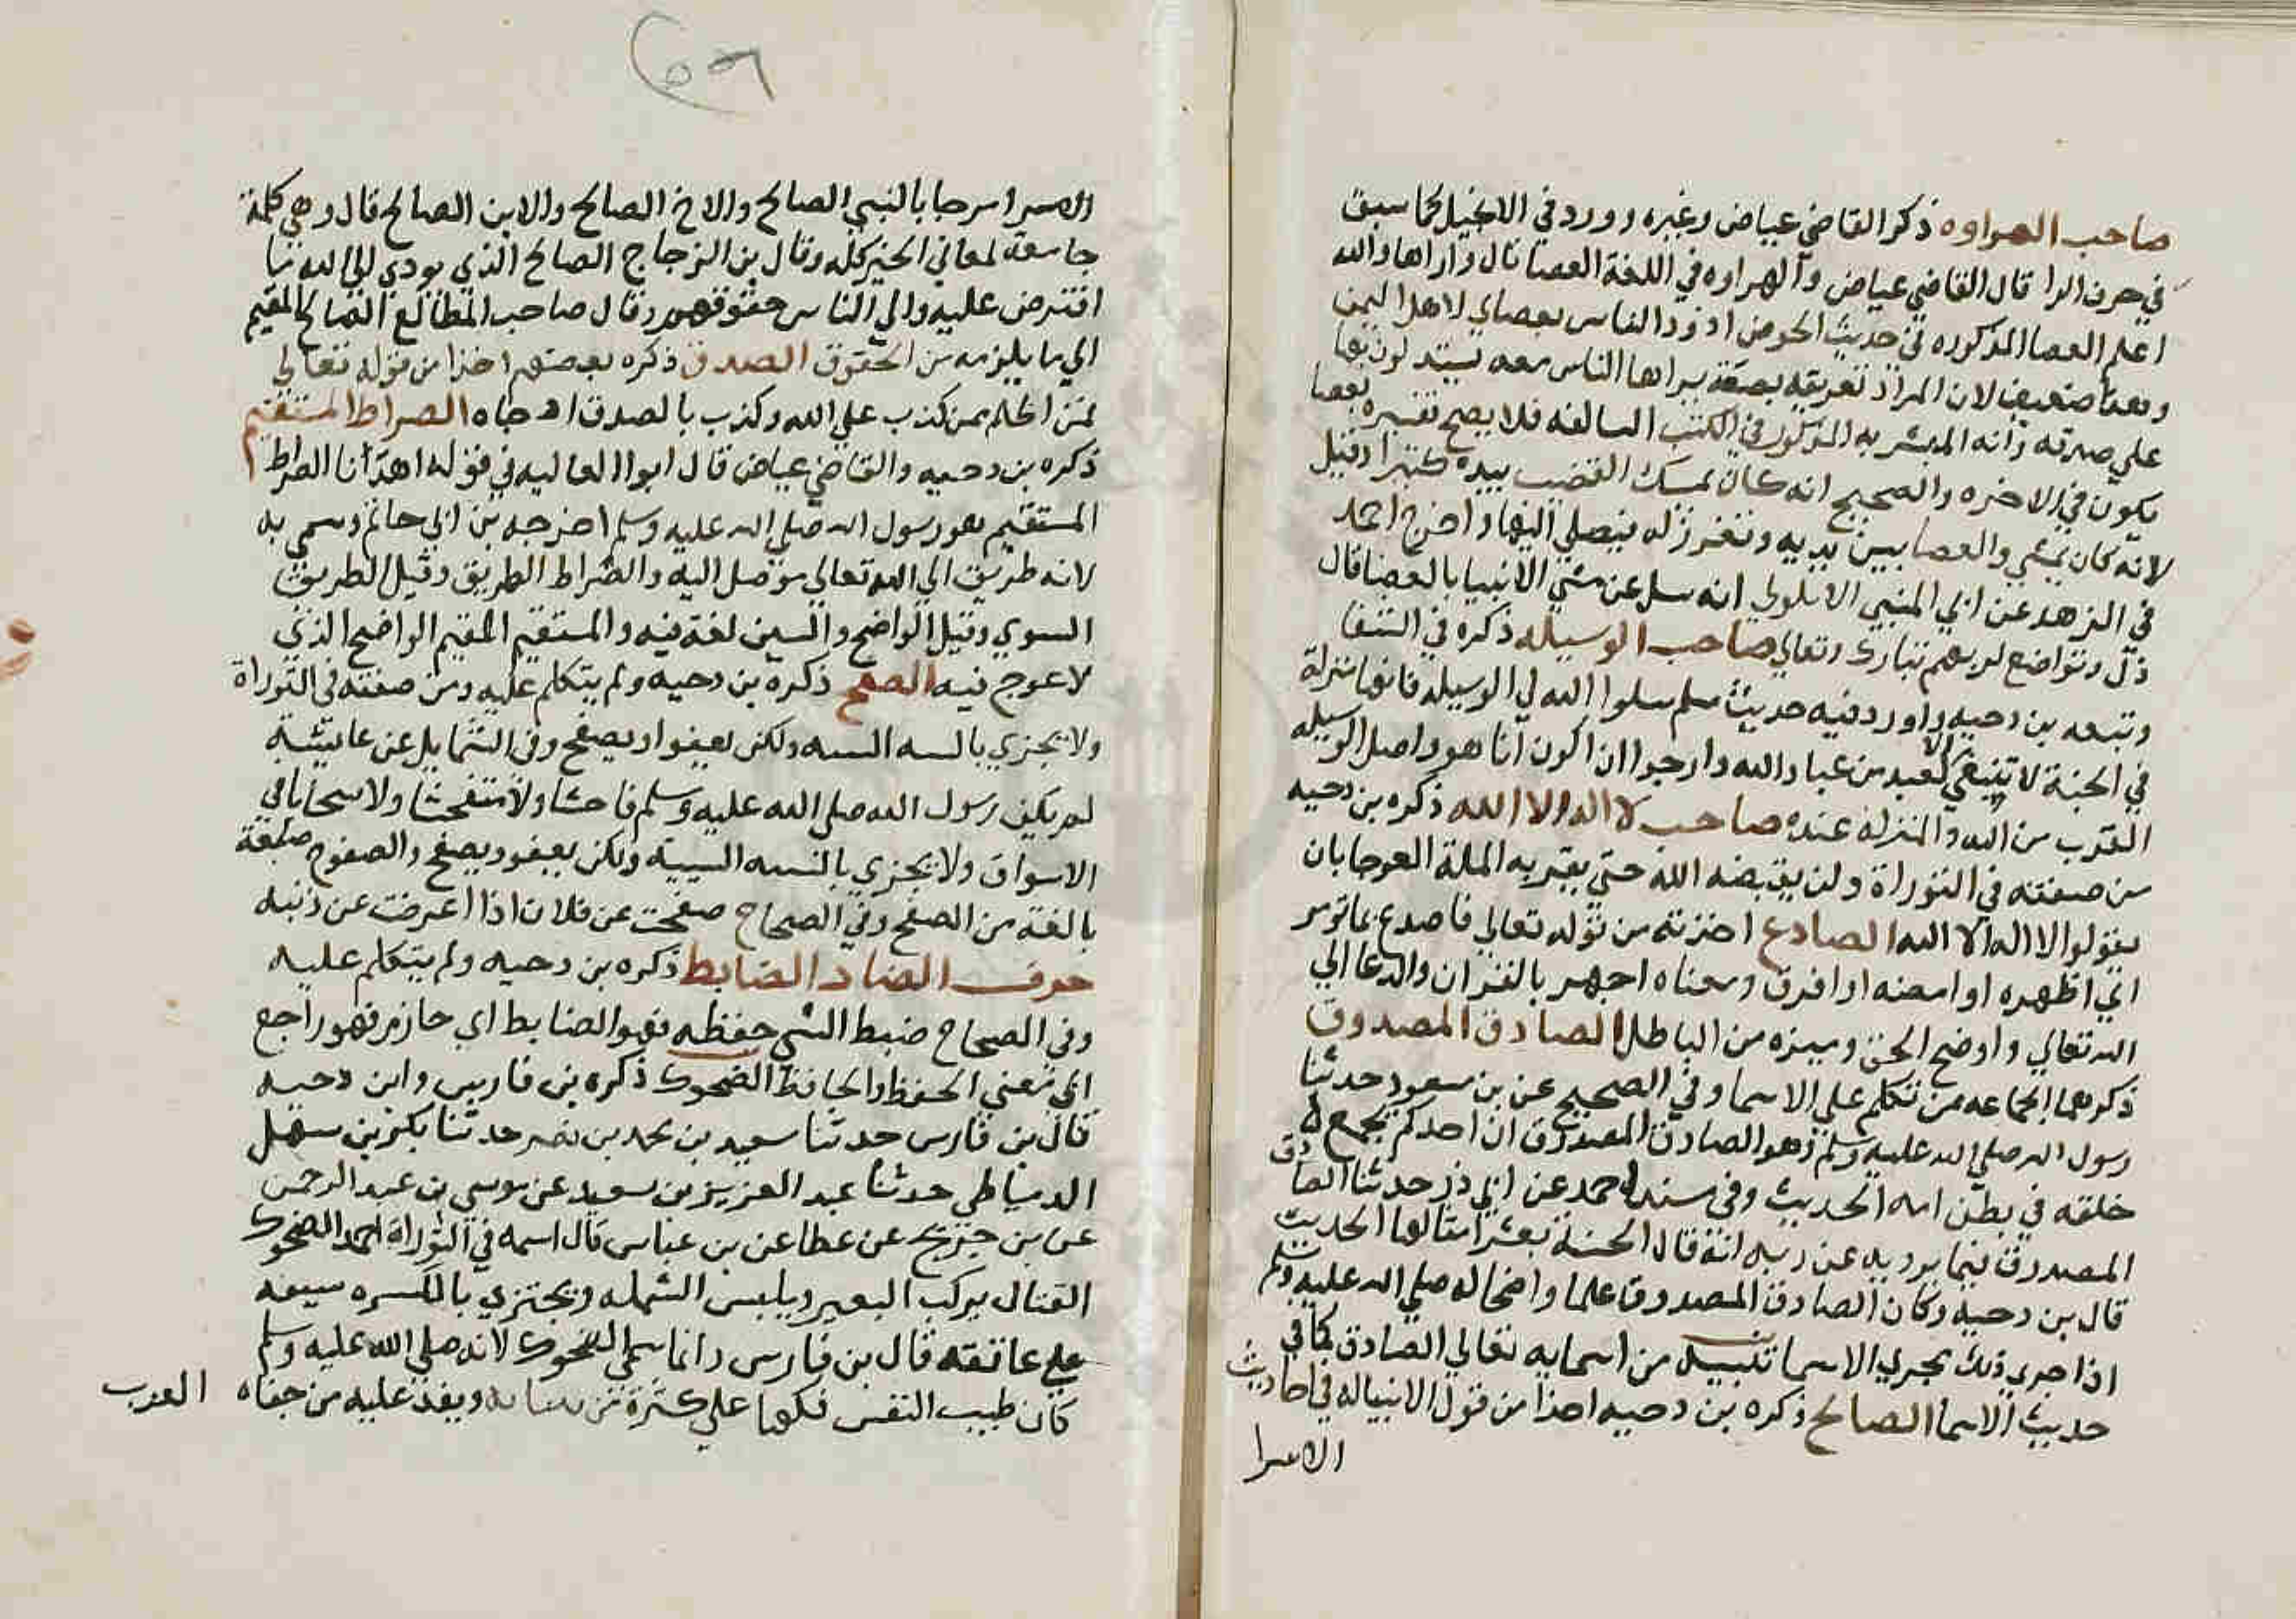 صاحب الهراوه ذكر القاضي عياض وغيره وورد في الانجيل كما سبق
في حرف الرا قال القاضي عياض والهراوه في اللغة العصا قال واراها والله
اعلم العصا المذكوره في حديث الحوض اذود الناس بعصاي لاهل اليمن
وهذا ضعيف لان المراد تعريفه بصفة يراها الناس معه يستدلون بها
علي صدقه وانه المبشر به المذكور في الكتب السالفه فلا يصح تفسيره بعصا
يكون في الاخره والصحيح انه كان يمسك القضيب بيده كثيرا وقيل
لانه كان يمشي والعصا بين يديه وتغرز له فيصلي اليها واخرج احمد
في الزهد عن ابي المثني الاملوكي انه سل عن مشي الانبيا بالعصا قال
ذل وتواضع لربهم تبارك وتعالي صاحب الوسيله ذكره في الشفا
وتبعه بن دحيه واورد فيه حديث مسلم سلوا الله لي الوسيله فانها منزلة
في الجنة لا تنبغي الا لعبد من عباد الله وارجوا ان اكون انا هو واصل الوسيله
القرب من الله والمنزله عنده صاحب لا اله الا الله ذكره بن دحيه
من صفته في التوراة ولن يقبضه الله حتي يقيم به الملة العوجا بان
يقولوا لا اله الا الله الصادع اخذته من قوله تعالي فاصدع بما تومر
اي اظهره او امضه او افرق ومعناه اجهر بالقران والدعا الي
الله تعالي واوضح الحق وميزه من الباطل الصادق المصدوق
ذكرهما الجماعه من تكلم علي الاسما وفي الصحيح عن بن مسعود حدثنا
رسول الله صلي الله عليه وسلم وهو الصادق المصدوق ان احدكم يجمع
خلقه في بطن امه الحديث وفي مسند احمد عن ابي ذر حدثنا الصادق
المصدوق فيما يرويه عن ربه انه قال الحسنة بعشر امثالها الحديث
قال بن دحيه وكان الصادق المصدوق علما واضحا له صلي الله عليه وسلم
اذا جري ذلك مجري الاسما تنبيه من اسمايه تعالي الصادق كما في
حديث الاسما الصالح ذكره بن دحيه اخذا من قول الانبيا له في احاديث
الاسرا
الاسرا مرحبا بالنبي الصالح والاخ الصالح والابن الصالح قال وهي كلمة
جامعة لمعاني الخير كله وقال بن الزجاج الصالح الذي يودي الي الله ما
افترض عليه والي الناس حقوقهم وقال صاحب المطالع الصالح المقيم
الي ما يلزمه من الحقوق الصدق ذكره بعضهم اخذا من قوله تعالي
فمن اظلم ممن كذب علي الله وكذب بالصدق اذ جاه الصراط المستقيم
ذكره بن دحيه والقاضي عياض قال ابوا العاليه في قوله اهدنا الصراط
المستقيم هو رسول الله صلي الله عليه وسلم اخرجه بن ابي حاتم وسمي به
لانه طريق الي الله تعالي موصل اليه والصراط الطريق وقيل الطريق
السوي وقيل الواضح والسين لغة فيه والمستقيم المقيم الواضح الذي
لا عوج فيه الصفح ذكره بن دحيه ولم يتكلم عليه ومن صفته في التوراة
ولا يجزي بالسيه السيه ولكن يعفوا ويصفح وفي الشمايل عن عايشة
لم يكن رسول الله صلي الله عليه وسلم فاحشا ولا متفحشا ولا سخابا في
الاسواق ولا يجزي بالسيه السيية ولكن يعفو ويصفح والصفوح صيغة
بالغة من الصفح وفي الصحاح صفحت عن فلان اذا اعرضت عن ذنبه
حرف الضاد الضابط ذكره بن دحيه ولم يتكلم عليه
وفي الصحاح ضبط الشي حفظه فهو الضابط اي حازم فهو راجع
الي معني الحفظ والحافظ الضحوك ذكره بن فارس وابن دحيه
قال بن فارس حدثنا سعيد بن محمد بن نصر حدثنا بكر بن سهل
الدمياطي حدثنا عبد العزيز بن سعيد عن موسي بن عبد الرحمن
عن بن جريج عن عطا عن بن عباس قال اسمه في التوراة احمد الضحوك
القتال يركب البعير ويلبس الشمله ويجتزي بالكسره سيفه
علي عاتقه قال بن فارس وانما سمي الضحوك لانه صلي الله عليه وسلم
كان طيب النفس فكها علي كثرة من ويفد عليه من جفاه العرب